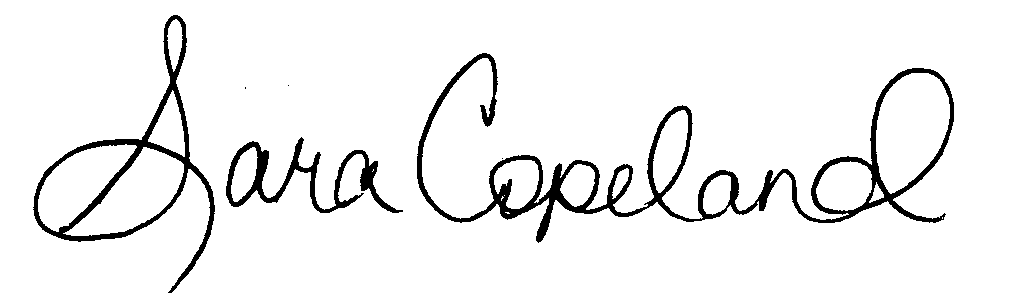 Sara Copeland